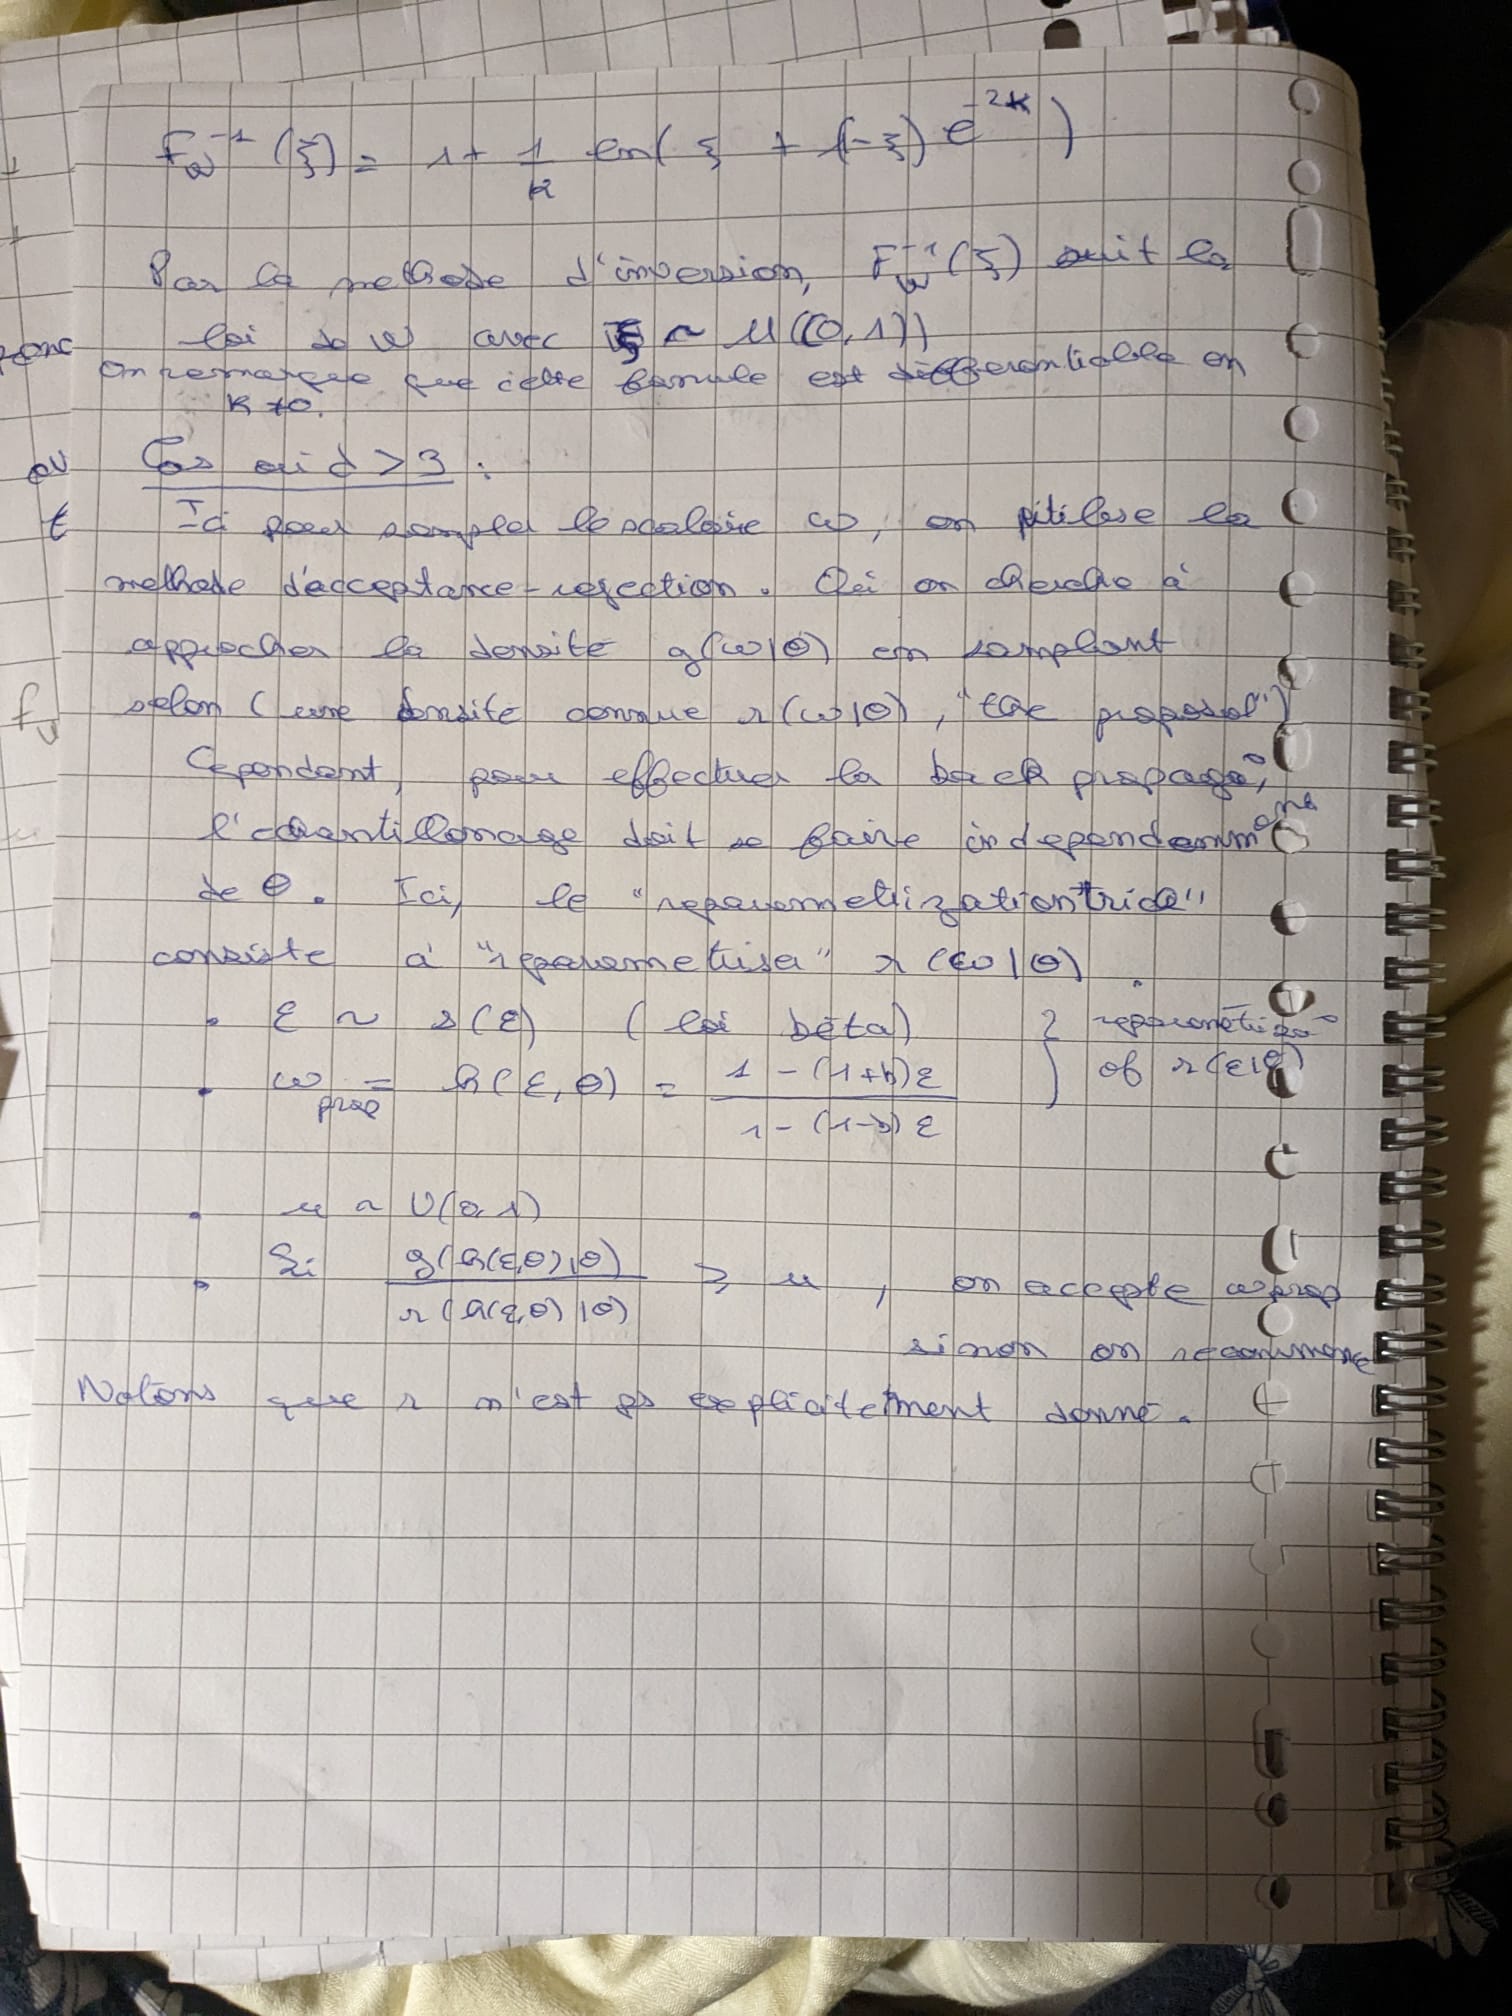 F_ω^{-1}(ξ) = 1 + 1/k ln(ξ + (1-ξ) e^{-2k})
Par la methode d'inversion, F_ω^{-1}(ξ) suit la
loi de ω avec ξ ~ U([0,1])
On remarque que cette formule est differentiable en
k≠0.
Cas où d > 3 :
Ici pour sampler le scalaire ω, on utilise la
methode d'acceptance-rejection. Où on cherche à
approcher la densité g(ω|θ) en samplant
selon (une densité connue r(ω|θ), "the proposal")
Cependant, pour effectuer la back propag°,
l'echantillonage doit se faire independamment
de θ. Ici, le "reparametrization trick"
consiste à "reparametriser" r(ω|θ).
• ε ~ s(ε) (loi bêta) } reparamétrisa°
• ω_prop = h(ε,θ) = (1-(1+b)ε)/(1-(1-b)ε) } of r(ε|θ)
• u ~ U(0,1)
• Si g(h(ε,θ)|θ)/r(h(ε,θ)|θ) ≥ u, on accepte ω_prop
sinon on recommence
Notons que r n'est ps explicitement donné.